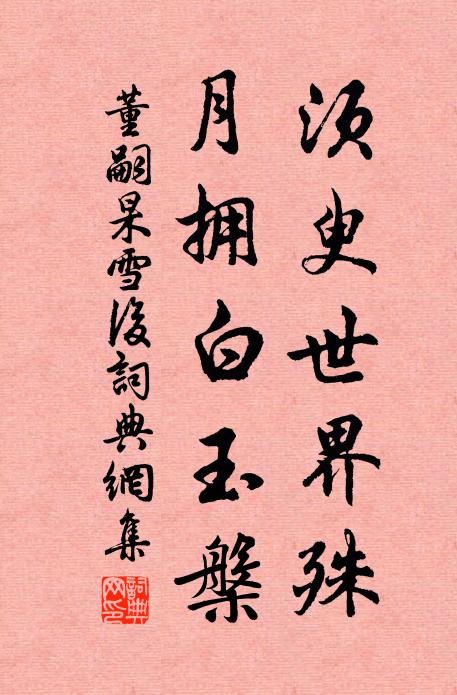 須臾世界殊
月拥白玉槃
董嗣杲雪後詞典網集
詞典網印